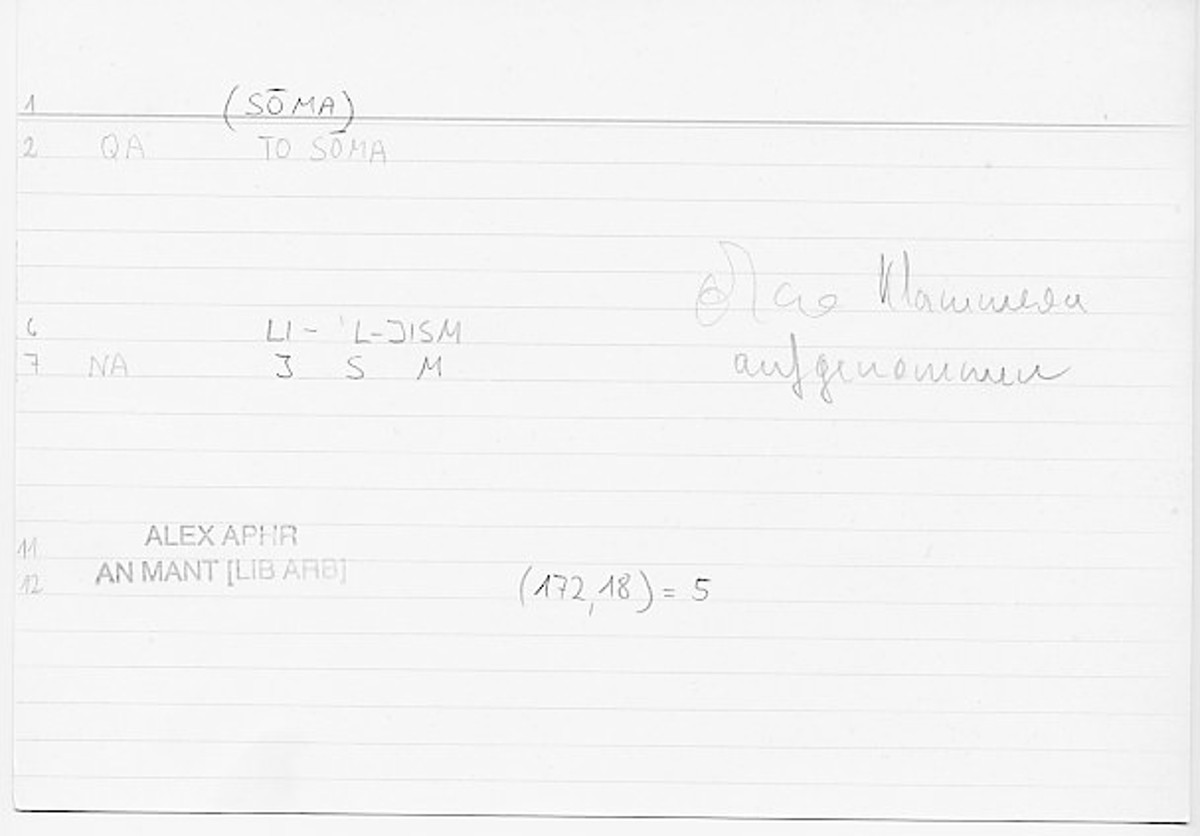 1 (SŌMA)
2 QA TO SŌMA
Klammern
6 LI- 'L-JISM
aufgenommen
7 NA J S M
11 ALEX APHR
12 AN MANT [LIB ARB]
(172,18) = 5